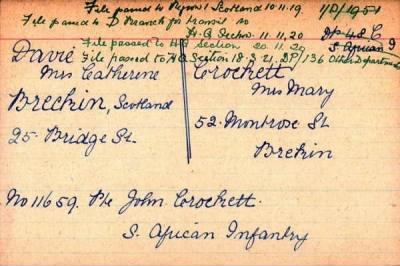 File passed to Region 1 Scotland 10.11.19. 1/P/1951
File passed to D Branch for transit to
H.Q. Section 11.11.20
File passed to HQ section 20.11.20 S. African I
File passed to HQ Section 18.3.21. DP/136 Other Departments
Davie
Mrs Catherine
Brechin, Scotland
25. Bridge St.
Crockett,
Mrs Mary
52. Montrose St
Brechin
No 11659. Pte John Crockett.
S. African Infantry